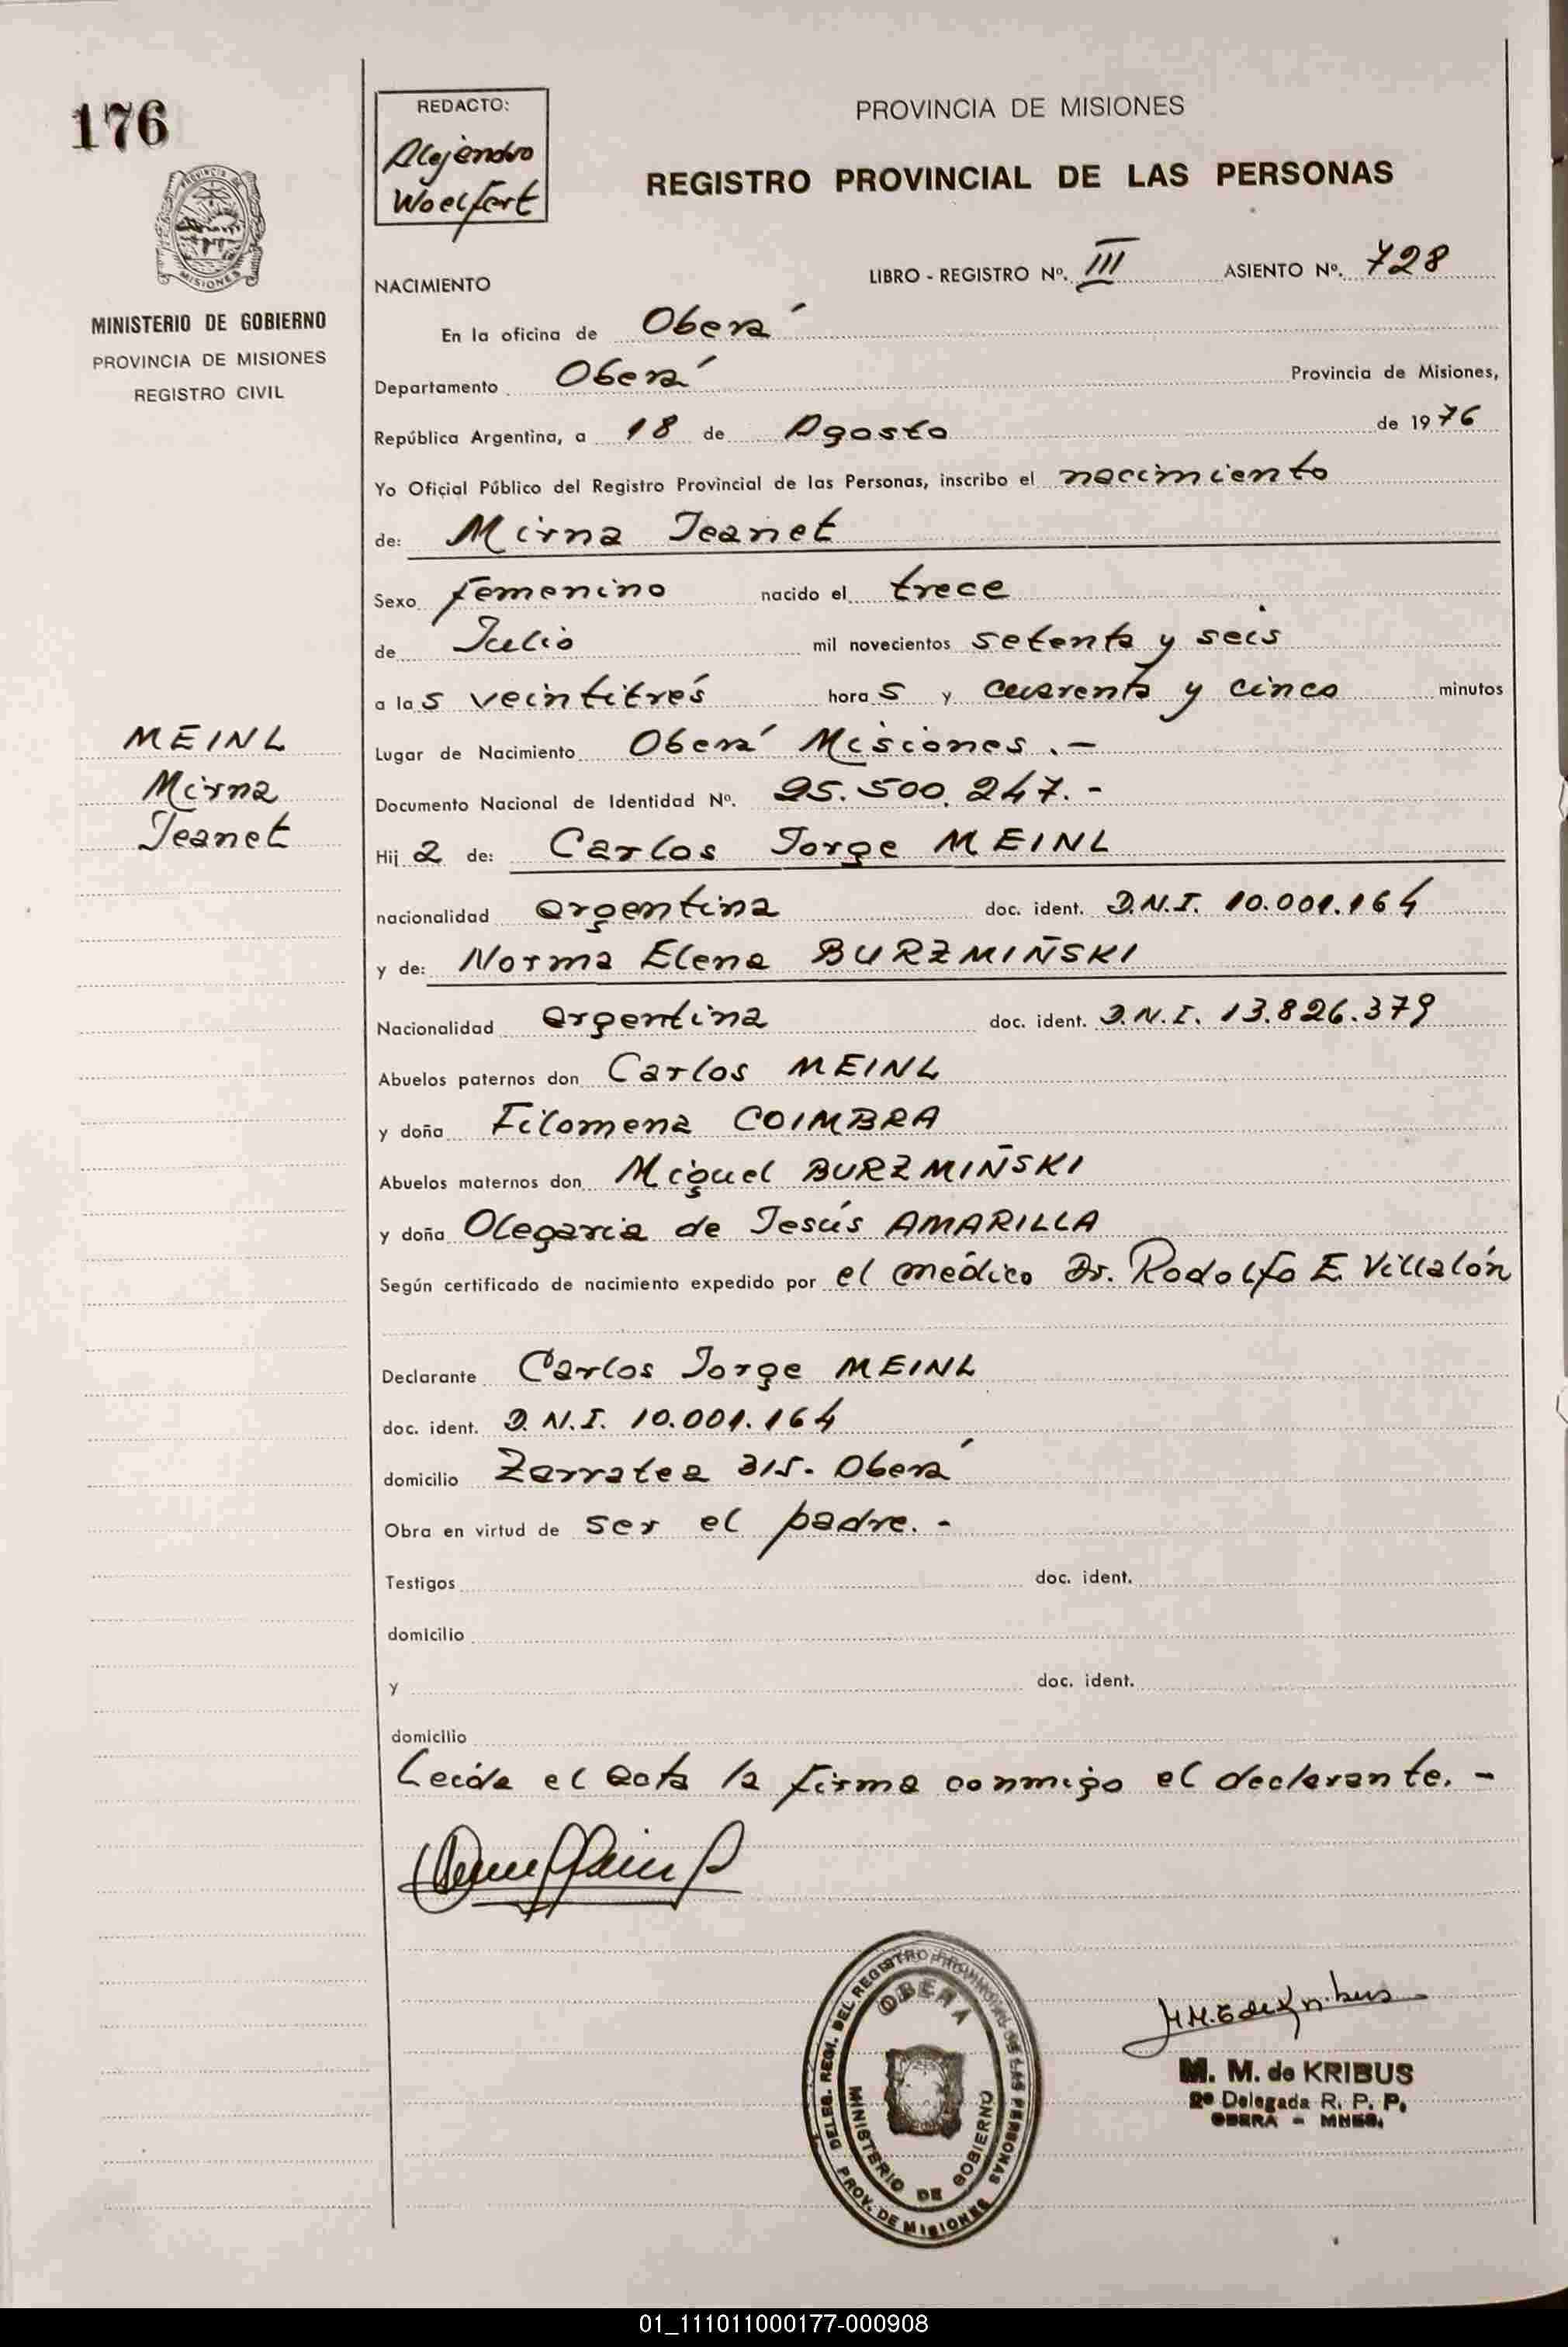 176
REDACTO:
Alejandro
Woelfert
PROVINCIA DE MISIONES
REGISTRO PROVINCIAL DE LAS PERSONAS
PROVINCIA DE
MISIONES
MINISTERIO DE GOBIERNO
PROVINCIA DE MISIONES
REGISTRO CIVIL
NACIMIENTO
LIBRO - REGISTRO Nº. III ASIENTO Nº. 728
En la oficina de Oberá
Departamento Oberá Provincia de Misiones,
República Argentina, a 18 de Agosto de 1976
Yo Oficial Público del Registro Provincial de las Personas, inscribo el nacimiento
de: Mirna Jeanet
Sexo femenino nacido el trece
de Julio mil novecientos setenta y seis
a las veintitrés horas y cuarenta y cinco minutos
MEINL
Mirna
Jeanet
Lugar de Nacimiento Oberá Misiones.-
Documento Nacional de Identidad Nº. 25.500.247.-
Hija de: Carlos Jorge MEINL
nacionalidad argentina doc. ident. D.N.I. 10.001.164
y de: Norma Elena BURZMIÑSKI
Nacionalidad argentina doc. ident. D.N.I. 13.826.379
Abuelos paternos don Carlos MEINL
y doña Filomena COIMBRA
Abuelos maternos don Miguel BURZMIÑSKI
y doña Olegaria de Jesús AMARILLA
Según certificado de nacimiento expedido por el médico Dr. Rodolfo E. Villalón
Declarante Carlos Jorge MEINL
doc. ident. D.N.I. 10.001.164
domicilio Zarratea 315. Oberá
Obra en virtud de ser el padre.-
Testigos doc. ident.
domicilio
y doc. ident.
domicilio
Leída el acta la firma conmigo el declarante.-
DELEG. REGI. DEL REGISTRO PROVINCIAL DE LAS PERSONAS
OBERA
MINISTERIO DE GOBIERNO
PROV. DE MISIONES
M. M. de KRIBUS
2º Delegada R. P. P.
OBERA - MNES.
01_111011000177-000908